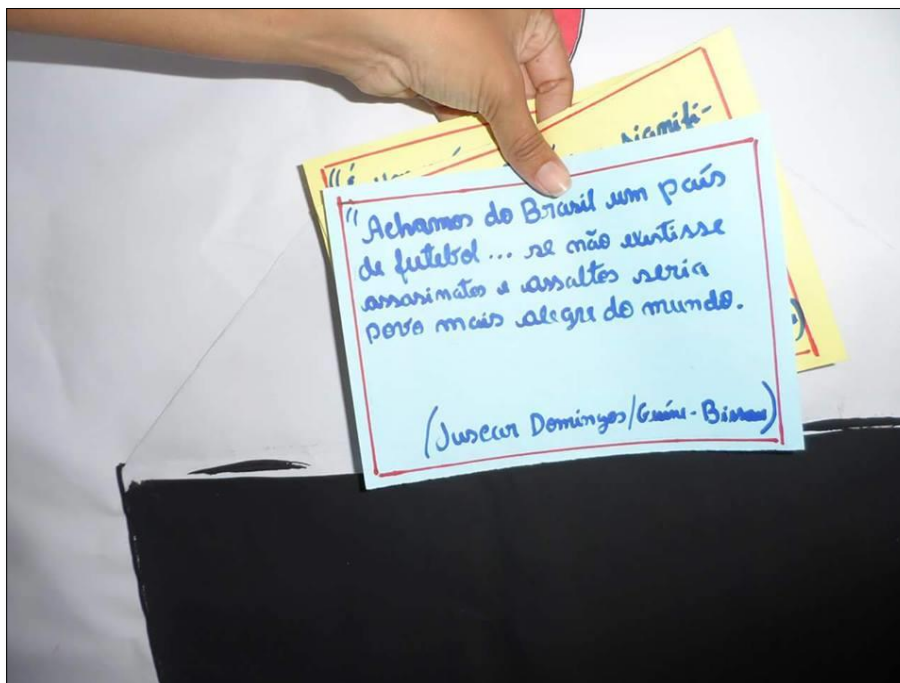 signifi-
"é
"Achamos do Brasil um país
de futebol... se não existisse
assasinatos e assaltos seria
povo mais alegre do mundo.
(Juscar Domingos/Guine-Bissau)